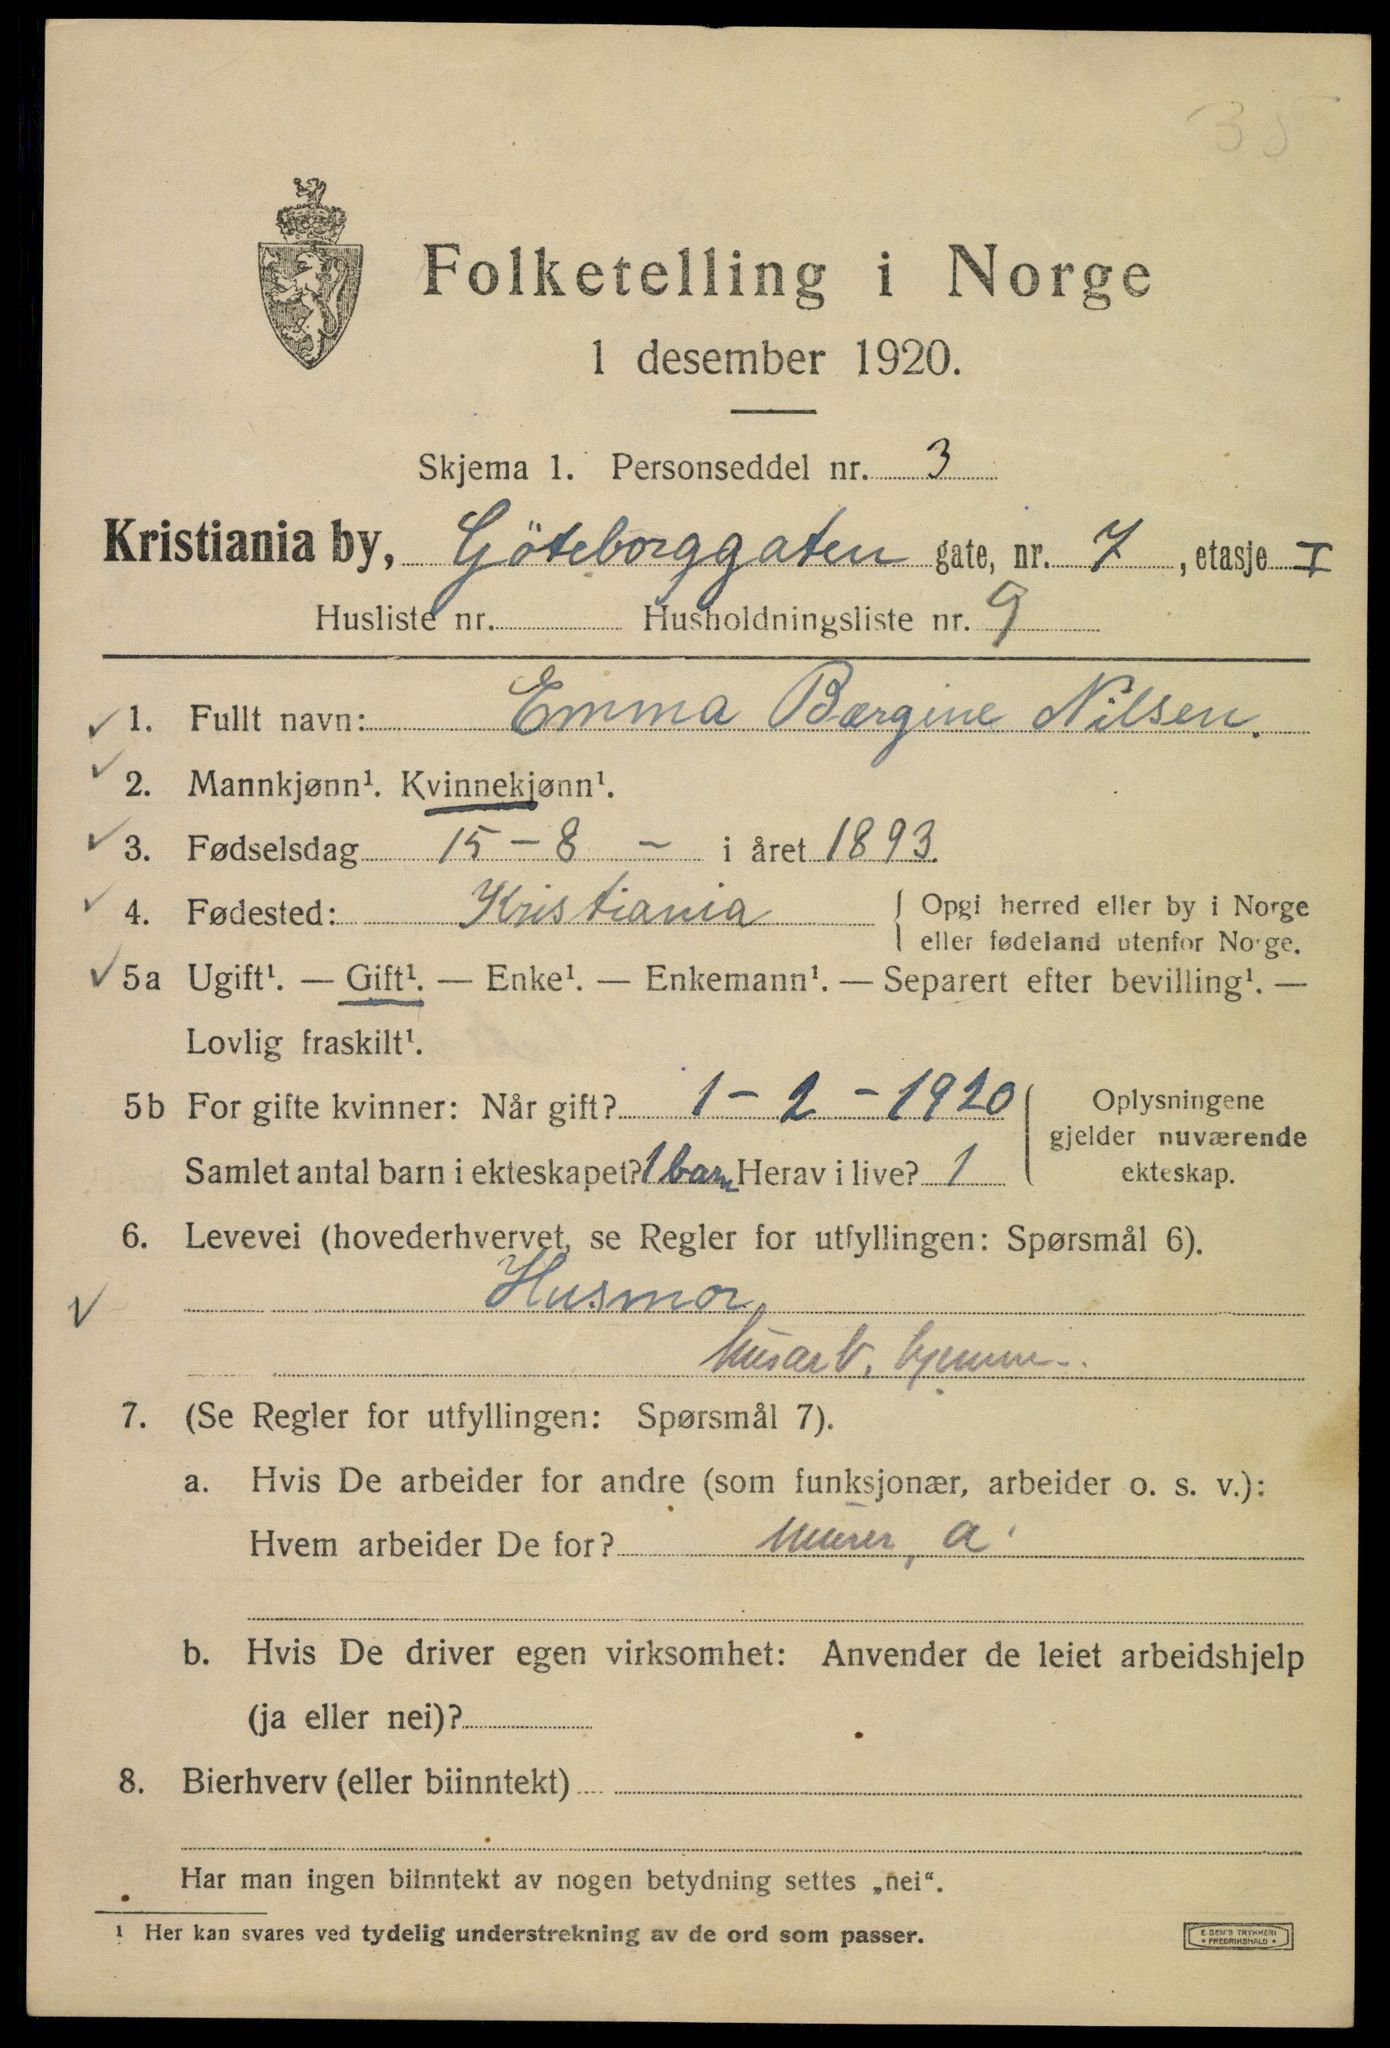 35
Folketelling i Norge
1 desember 1920.
Skjema 1. Personseddel nr. 3
Kristiania by, Göteborggaten gate, nr. 7, etasje I
Husliste nr. Husholdningsliste nr. 9
1. Fullt navn: Emma Bærgine Nilsen.
2. Mannkjønn¹. Kvinnekjønn¹.
3. Fødselsdag 15 - 8 - i året 1893.
4. Fødested: Kristiania { Opgi herred eller by i Norge
eller fødeland utenfor Norge.
5a Ugift¹. — Gift¹. — Enke¹. — Enkemann¹. — Separert efter bevilling¹. —
Lovlig fraskilt¹.
5b For gifte kvinner: Når gift? 1 - 2 - 1920
Samlet antal barn i ekteskapet? 1 barn Herav i live? 1
Oplysningene
gjelder nuværende
ekteskap.
6. Levevei (hovederhvervet, se Regler for utfyllingen: Spørsmål 6).
Husmor,
husarb. hjemme..
7. (Se Regler for utfyllingen: Spørsmål 7).
a. Hvis De arbeider for andre (som funksjonær, arbeider o. s. v.):
Hvem arbeider De for? murer, a
b. Hvis De driver egen virksomhet: Anvender de leiet arbeidshjelp
(ja eller nei)?
8. Bierhverv (eller biinntekt)
Har man ingen biinntekt av nogen betydning settes „nei“.
¹ Her kan svares ved tydelig understrekning av de ord som passer.
E. SEM'S TRYKKERI
* FREDRIKSHALD *